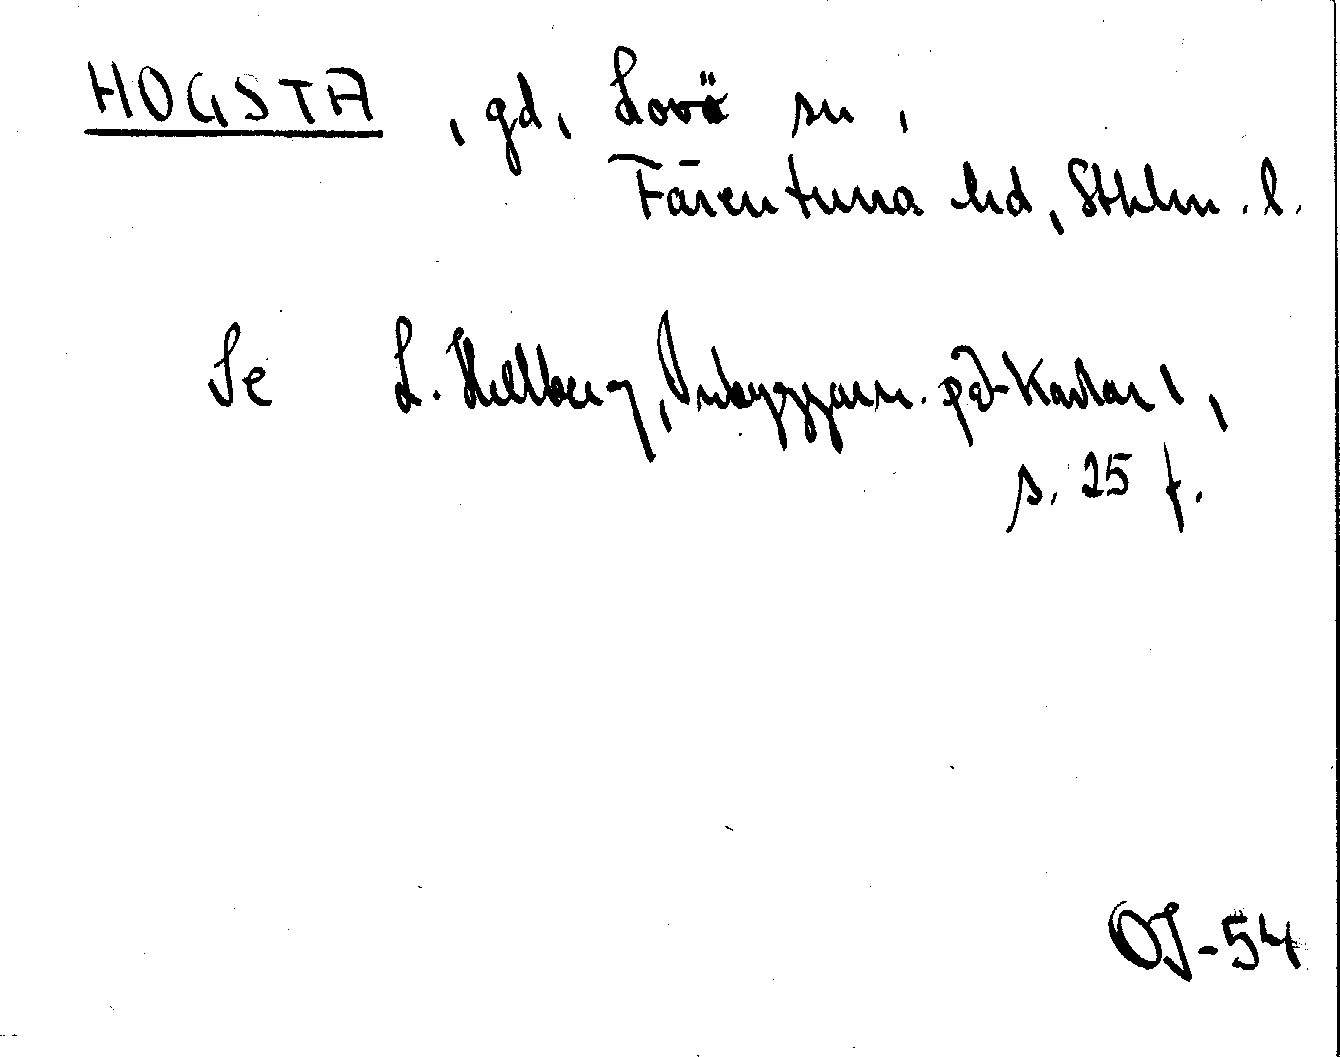 HOGSTA, gd, Lovö sn,
Färentuna hd, Sthlm. l.
Se L. Hellberg, Inbyggarn. på -karlar 1,
s. 25 f.
OJ-54